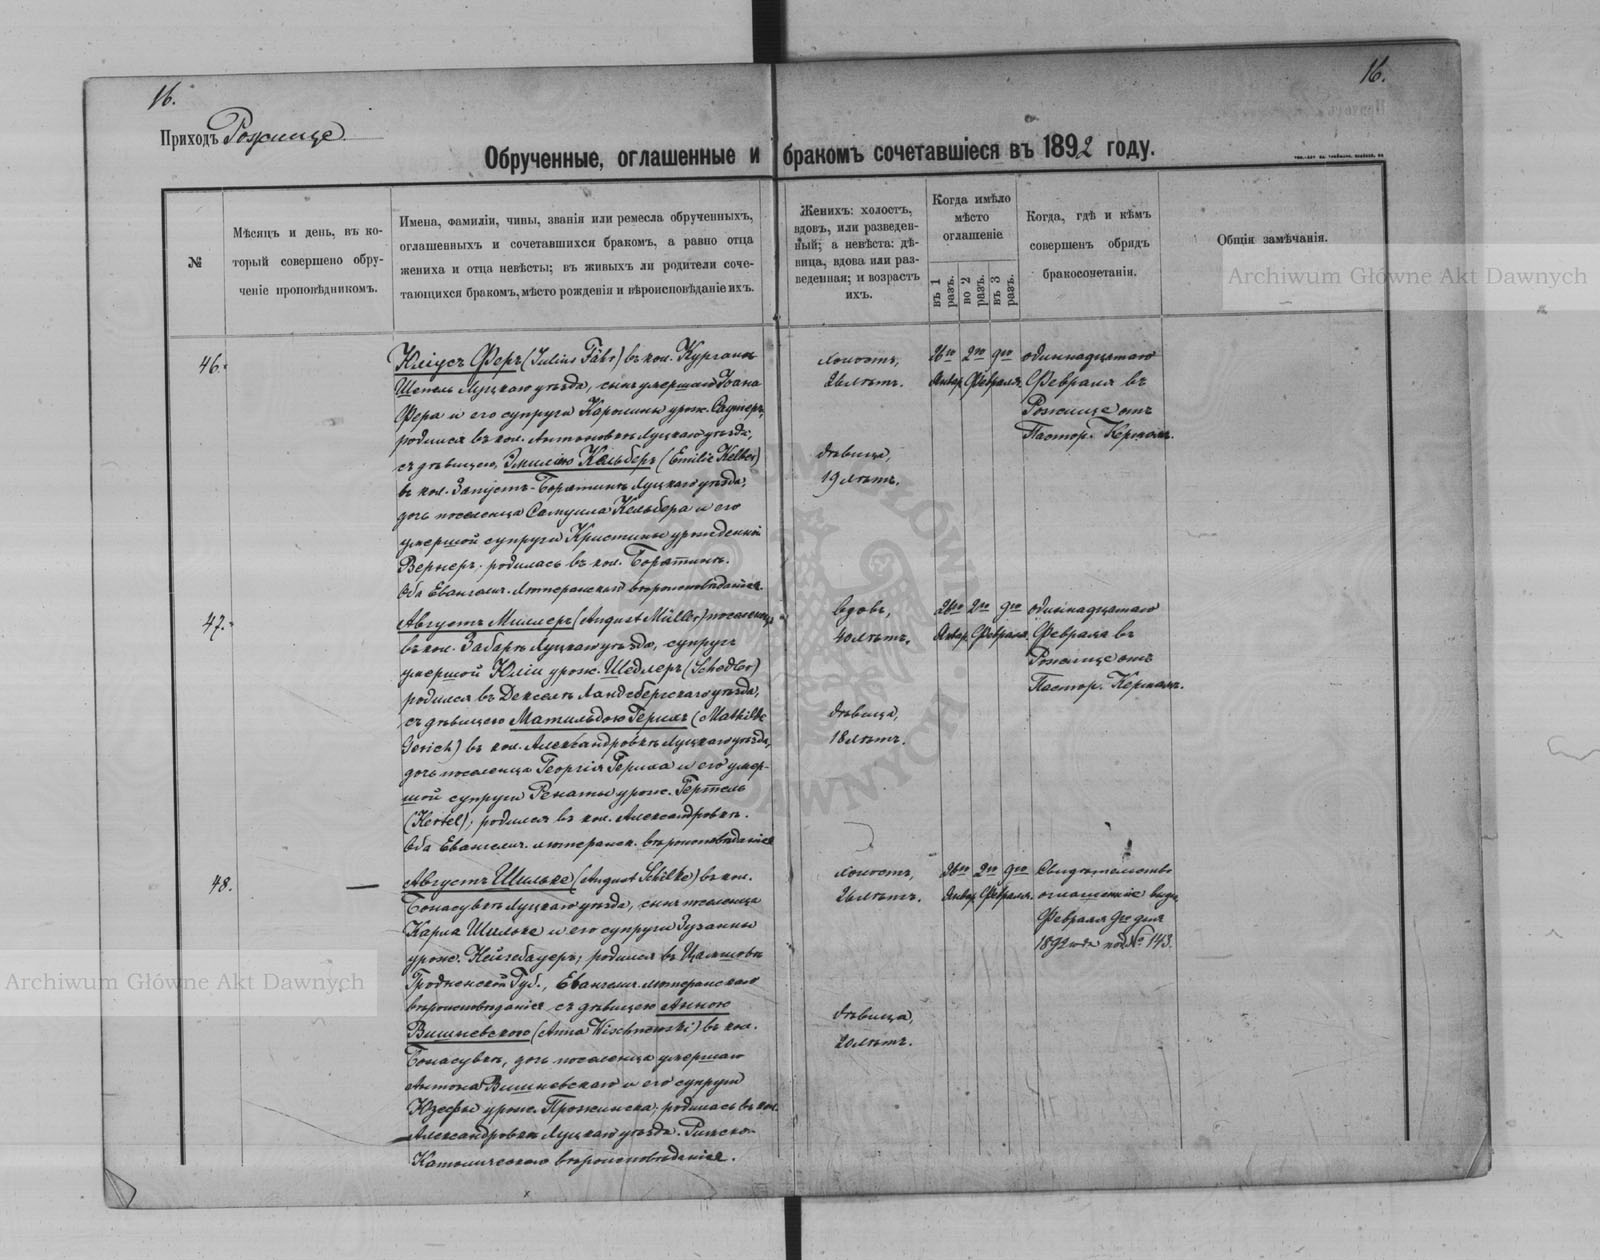 16.
16.
Приходъ Рожище
Обрученные, оглашенные и бракомъ сочетавшіеся въ 1892 году.
№
Мѣсяцъ и день, въ ко-
торый совершено обру-
ченіе проповѣдникомъ.
Имена, фамиліи, чины, званія или ремесла обрученныхъ,
оглашенныхъ и сочетавшихся бракомъ, а равно отца
жениха и отца невѣсты; въ живыхъ ли родители соче-
тающихся бракомъ, мѣсто рожденія и вѣроисповѣданіе ихъ.
Женихъ: холостъ,
вдовъ, или разведен-
ный; а невѣста: дѣ-
вица, вдова или раз-
веденная; и возрастъ
ихъ.
Когда имѣло
мѣсто
оглашеніе
въ 1 разъ.
во 2 разъ.
въ 3 разъ.
Когда, гдѣ и кѣмъ
совершенъ обрядъ
бракосочетанія.
Общія замѣчанія.
46.
Юліусъ Феръ (Julius Fähr) въ кол. Курганъ
Шепель Луцкаго уѣзда, сынъ умершаго Іоана
Фера и его супруги Каролины урож.
родился въ кол. Антоновкѣ Луцкаго уѣзда,
съ дѣвицею Эмиліею Кельберъ (Emilie Kelber)
въ кол. Запустъ-Боратинъ Луцкаго уѣзда,
дочь поселенца Самуила Кельбера и его
умершой супруги Кристины урожденной
Вернеръ, родилась въ кол. Боратинъ.
Оба Евангелич. Лютеранскаго вѣроисповѣданія.
холостъ,
26 лѣтъ.
дѣвица,
19 лѣтъ.
26го 2го 9го
Январ. Февраля.
одиннадцатаго
Февраля въ
Рожище отъ
Пастор. Керма.
47.
Августъ Миллеръ (August Müller) поселенца
въ кол. Забара Луцкаго уѣзда, супругъ
умершой Юліи урож. Шедлеръ (Schedler)
родился въ Дексель Ландсбергскаго уѣзда,
съ дѣвицею Матильдою Герихъ (Mathilde
Gerich) въ кол. Александровкѣ Луцкаго уѣзда,
дочь поселенца Георгія Гериха и его умер-
шой супруги Ренаты урож. Гертель
(Hertel); родился въ кол. Александровкѣ.
Оба Евангелич. лютеранск. вѣроисповѣданія
вдовъ,
40 лѣтъ.
дѣвица,
18 лѣтъ.
26го 2го 9го
Январ. Февраля
одиннадцатаго
Февраля въ
Рожище отъ
Пастор. Керма.
48.
Августъ Шильке (August Schilke) въ кол.
Бонасувкѣ Луцкаго уѣзда, сынъ поселенца
Карла Шильке и его супруги Зузанны
урож. Нейгебауеръ; родился въ
Гродненской Губ., Евангелич. лютеранскаго
вѣроисповѣданія съ дѣвицею Анною
Вишневскою (Anna Wischnewski) въ кол.
Бонасувкѣ, дочь поселенца умершаго
Антона Вишневскаго и его супруги
Юзефы урож. родилась въ кол.
Александровкѣ Луцкаго уѣзда. Римско-
Католическаго вѣроисповѣданія.
холостъ,
26 лѣтъ.
дѣвица,
20 лѣтъ.
26го 2го 9го
Январ. Февраля.
Свидѣтельство
оглашенію выда.
Февраля 9го дня
1892 года под № 143.
Archiwum Główne Akt Dawnych
Archiwum Główne Akt Dawnych